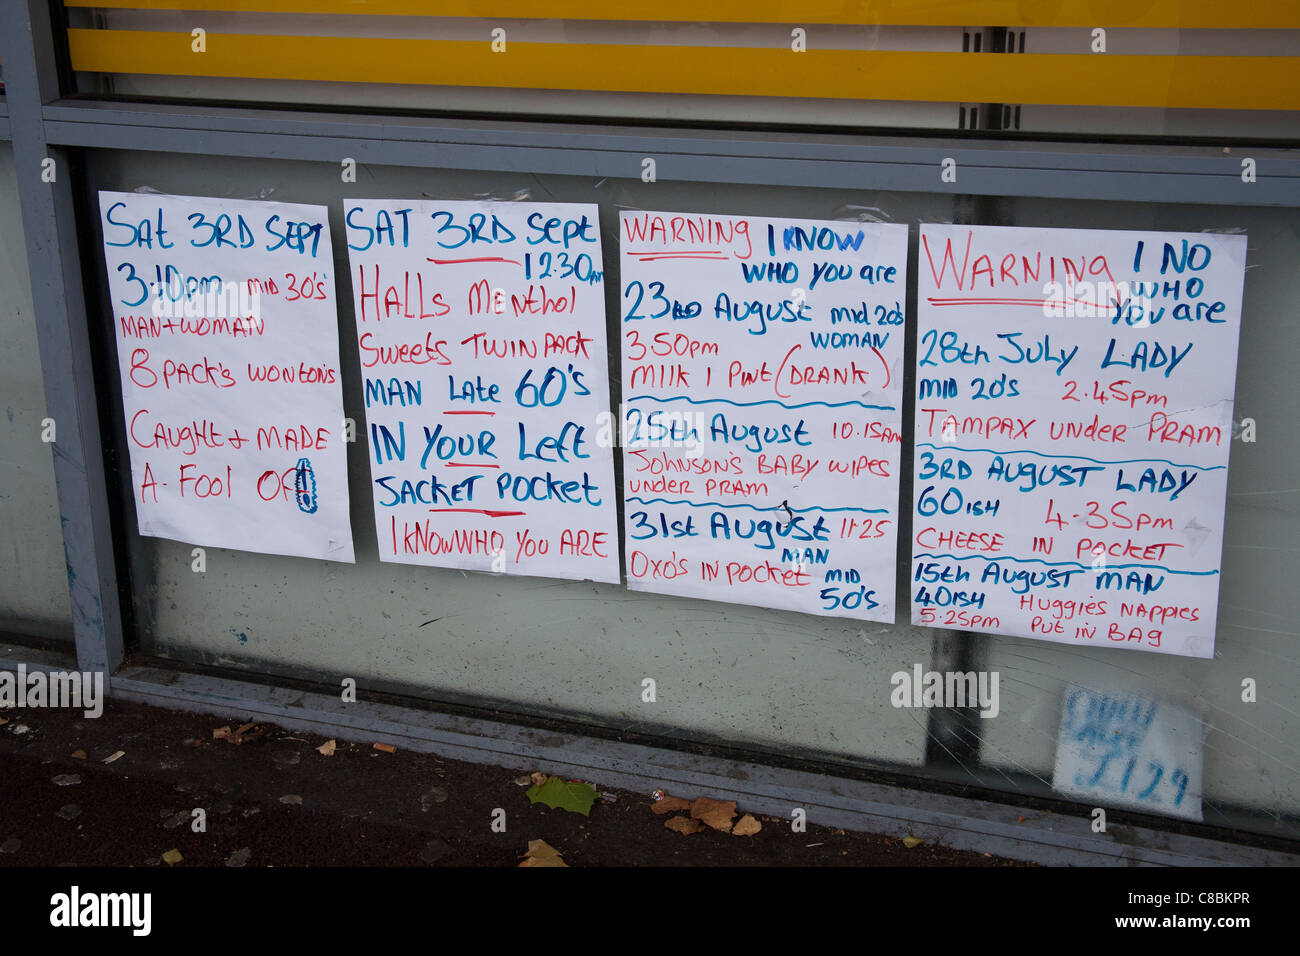 Sat 3RD SEPT
3.10pm MID 30's
MAN+WOMAN
8 PACK'S WONTON'S
CAUGHT + MADE
A. FOOL OF!
SAT 3RD Sept
12.30AM
HALLS MENTHOL
SWEETS TWIN PACK
MAN LATE 60'S
IN YOUR Left
JACKET POCKET
I KNOW WHO YOU ARE
WARNING I KNOW
WHO YOU are
23RD AUGUST MID 20's
WOMAN
3.50pm
MILK 1 PINT (DRANK)
25th AUGUST 10.15AM
JOHNSON'S BABY WIPES
UNDER PRAM
31st AUGUST 11.25
MAN
OXO'S IN POCKET MID
50's
WARNING I NO
WHO
YOU are
28th JULY LADY
MID 20's 2.45pm
TAMPAX UNDER PRAM
3RD AUGUST LADY
60ISH 4.35pm
CHEESE IN POCKET
15th AUGUST MAN
40ISH HUGGIES NAPPIES
5.25pm PUT IN BAG
£1.29
alamy
Image ID: C8BKPR
www.alamy.com